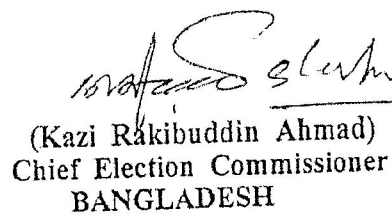 (Kazi Rakibuddin Ahmad)
Chief Election Commissioner
BANGLADESH